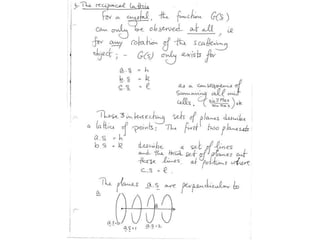 The reciprocal lattice
For a crystal, the function G(s)
can only be observed at all, ie
for any rotation of the scattering
object; - G(s) only exists for
a.s = h
b.s = k
c.s = l
as a consequence of
summing all unit
cells,
These 3 intersecting sets of planes describe
a lattice of points: The first two planesets
a.s = h
b.s = k
describe a set of lines
and the third set of planes cut
these lines at positions where
c.s = l.
The planes a.s are perpendicular to
a
a.s=0 a.s=1 a.s=2